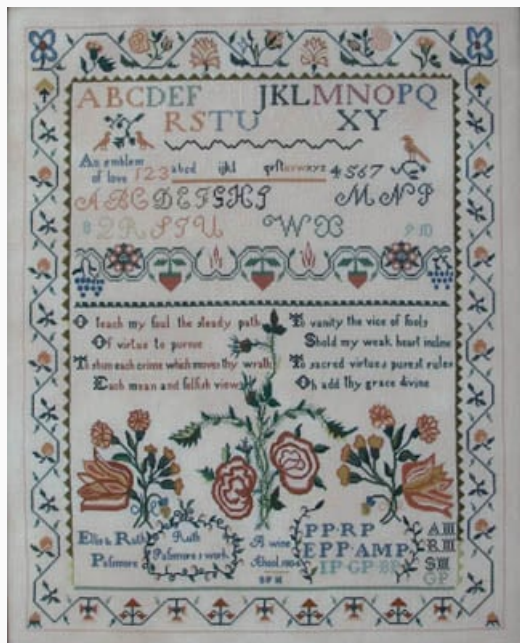 ABCDEF JKLMNOPQ
RSTU XY
An emblem
of love 123 abcd ijkl qrſtuvwxyz 4567
ABCDEFGHI MNP
8 QR STU WX 9 10
O teach my ſoul the ſteady path
Of virtue to purſue
To ſhun each crime which moves thy wrath
Each mean and ſelfiſh view
To vanity the vice of fools
Shold my weak heart incline
To sacred virtues pureſt rules
Oh add thy grace divine
Ellis & Ruth
Paſsmore
Ruth
Paſsmore s work
A wine
School
PP·RP
EPP·AMP
IP·GP·BP
A III
R III
S III
GP